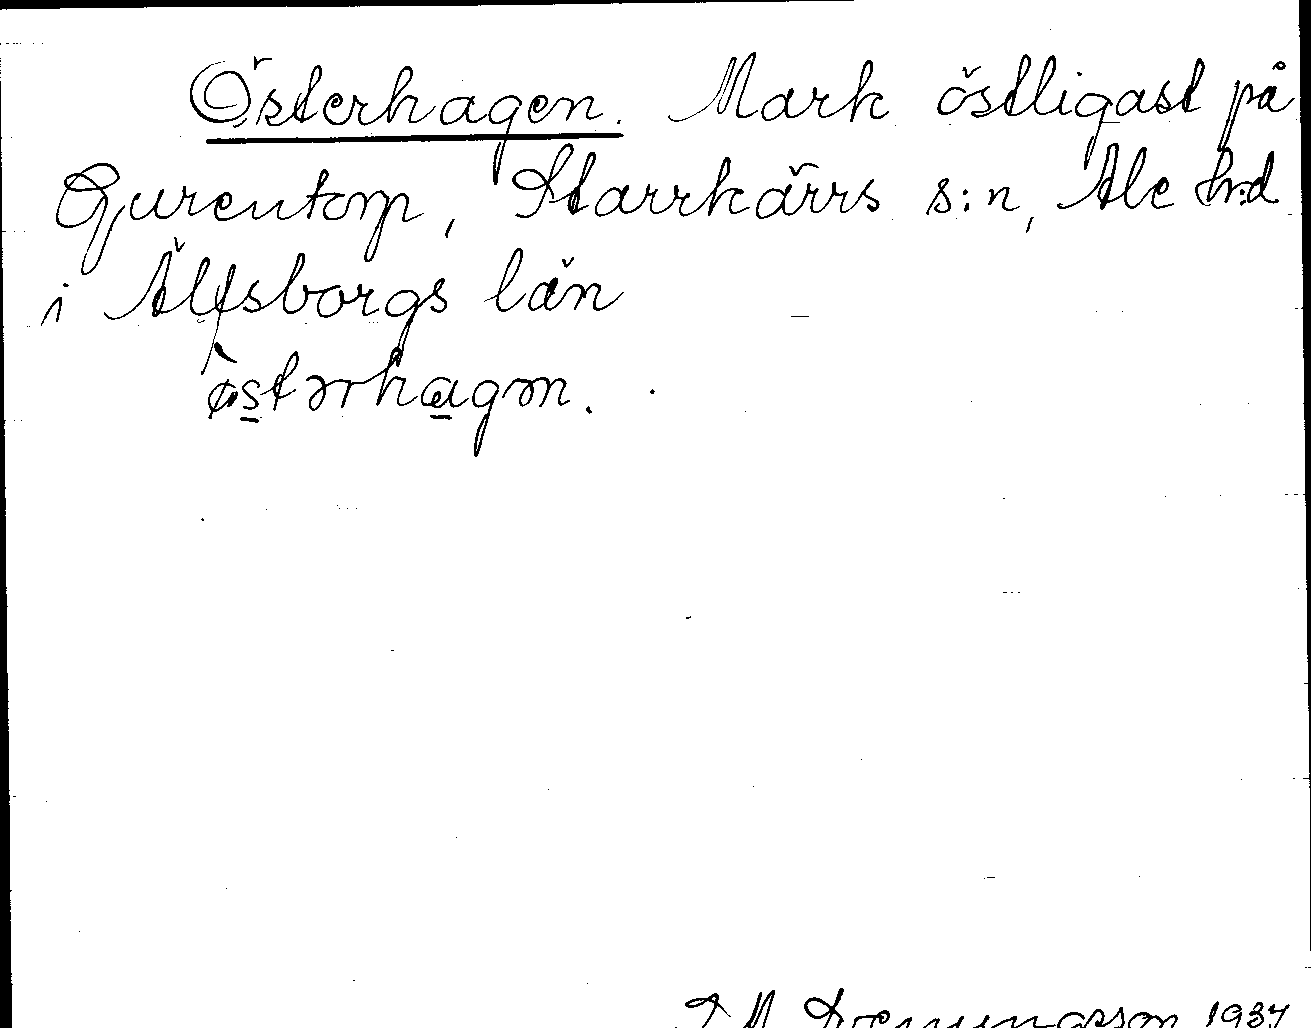 Österhagen. Mark östligast på
Gurentorp, Starrkärrs s:n, Ale h:d
i Älfsborgs län
ø̀stərhagən.
1937